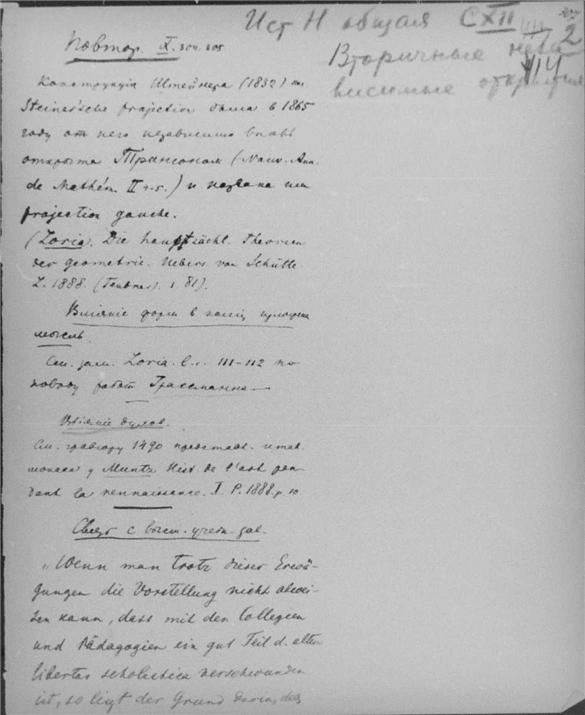 Ист Н общая CXII
2
Вторичные неза
висимые открытия
414
Повтор. IX.
Конструкція Штейнера (1832)
Steiner'sche projection была в 1865
году от него независимо вновь
открыта Трансоном (Nouv. Ann.
de Mathém. II) и названа им
projection gauche.
(Loria. Die hauptsächl. Theorien
der geometrie. Uebers. von Schütte
L. 1888. (Teubner). s. 81).
Вліяніе форм в
мысль.
См. зам. Loria. l. c. 111-112 по
поводу работ Грассманна
См. гравюру 1490 представ.
монаха у Muntz Hist. de l'art pen-
dant la rennaissance. I. P. 1888. p
"Wenn man trotz dieser Erwä-
gungen die Vorstellung nicht abwei-
sen kann, dass mit den Collegien
und Pädagogien ein gut Teil d. alten
libertas scholastica verschwunden
ist, so liegt der Grund darin, das